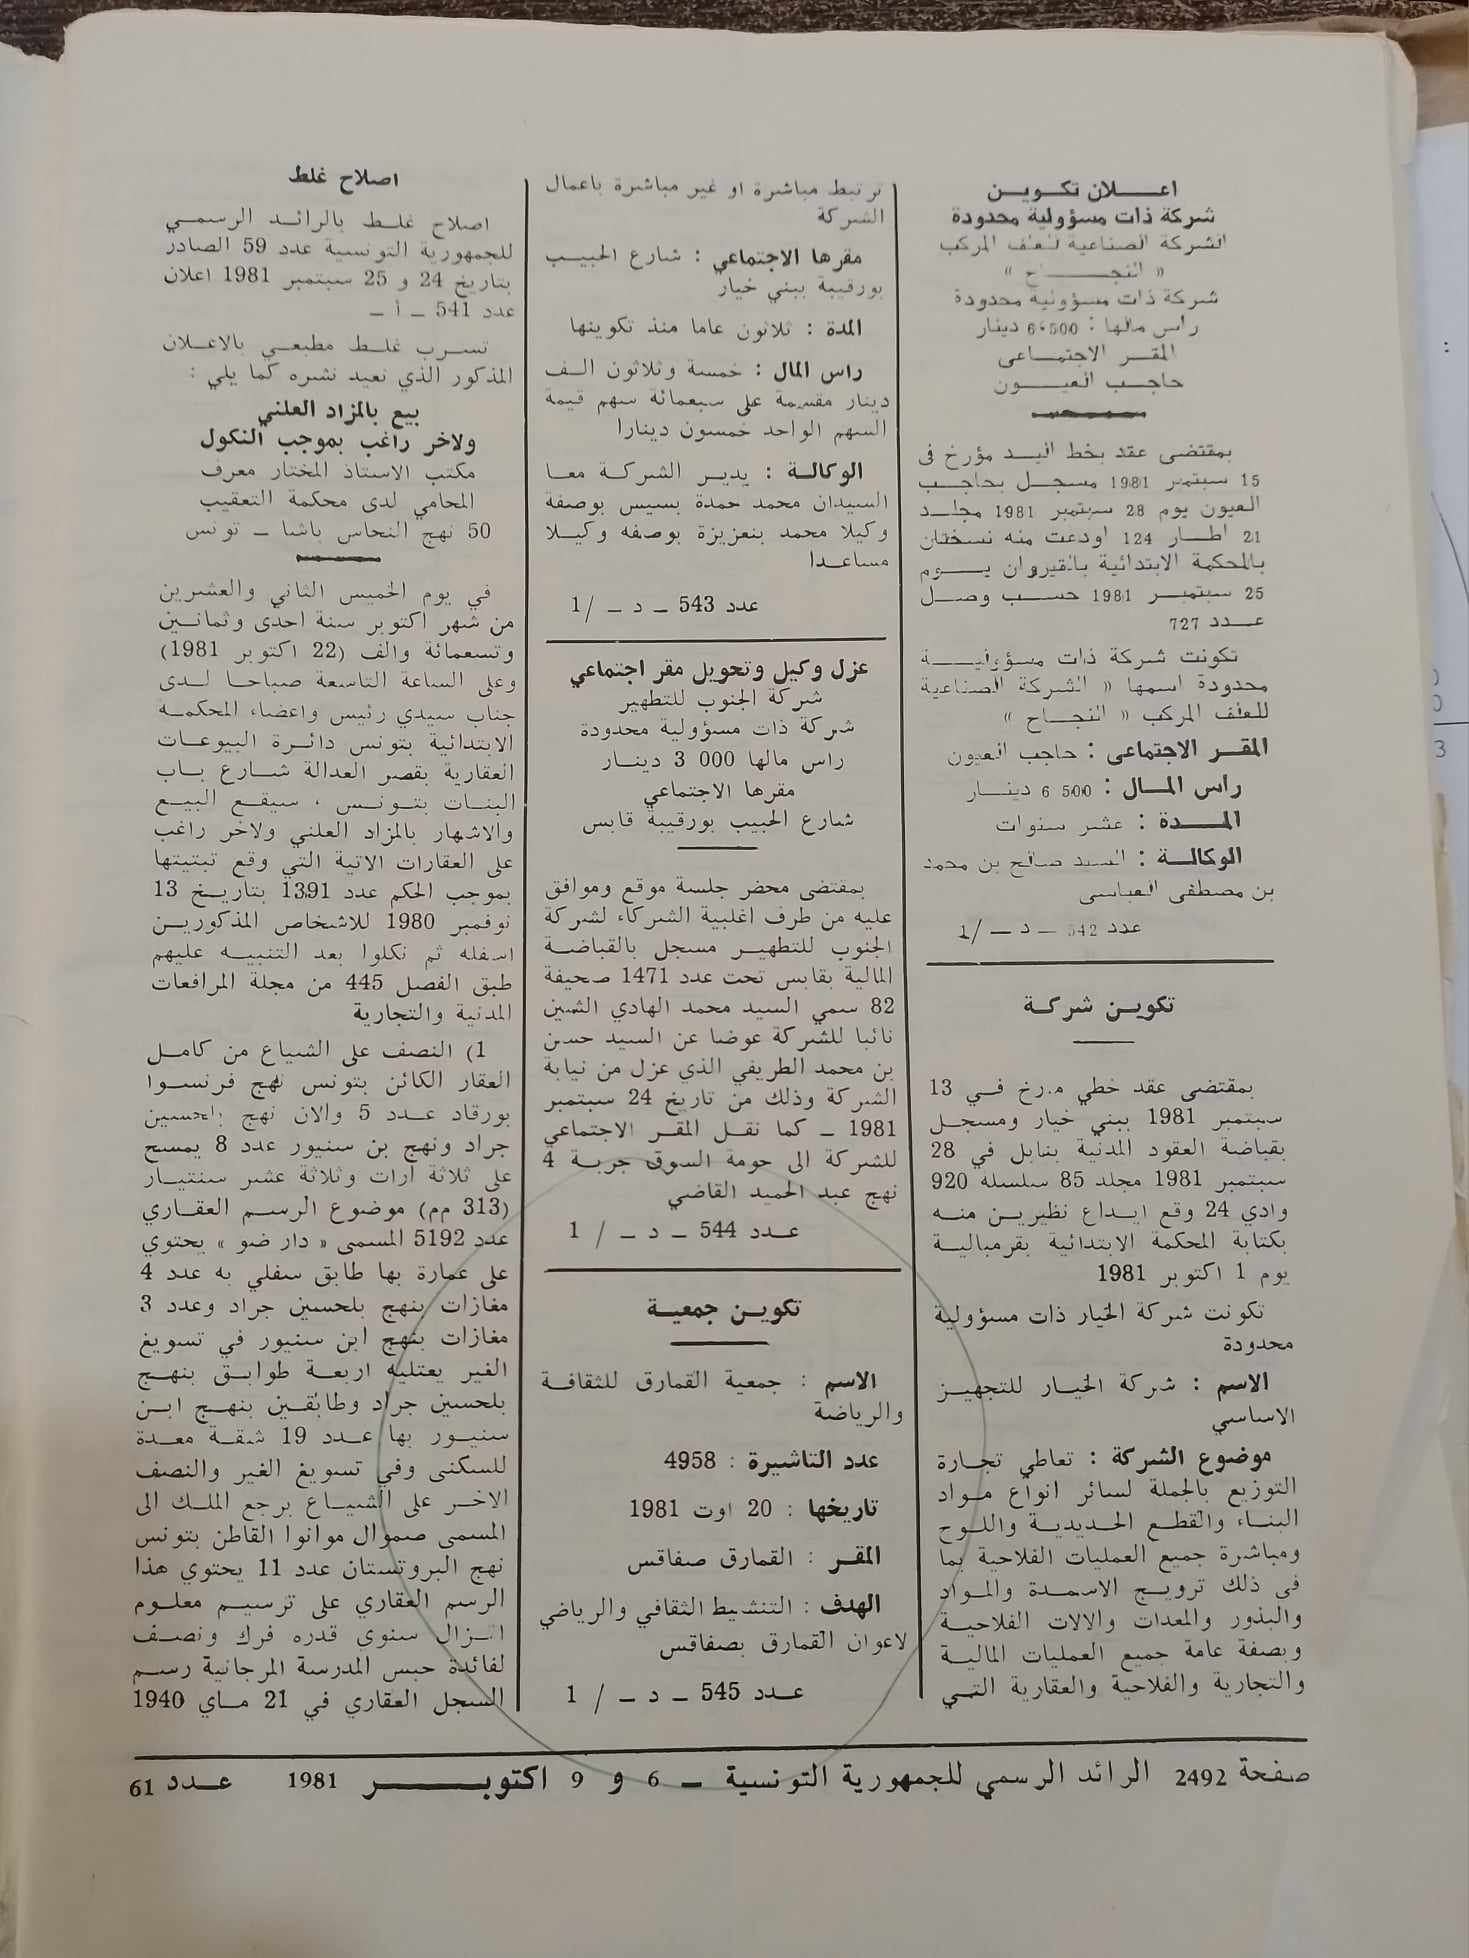 اعــلان تكـويـن
شركة ذات مسؤولية محدودة
الشركة الصناعية للعلف المركب
« النجــــاح »
شركة ذات مسؤولية محدودة
راس مالها : 6.500 دينار
المقـر الاجتمـاعى
حاجـب العيـــون
بمقتضى عقد بخط اليـد مؤرخ فى
15 سبتمبر 1981 مسجـل بحاجـب
العيون يوم 28 سبتمبر 1981 مجلـد
21 اطـار 124 اودعت منه نسختان
بالمحكمة الابتدائية بالقيروان يــوم
25 سبتمبـر 1981 حسـب وصـل
عــدد 727
تكونت شركة ذات مسؤوليـــة
محدودة اسمها « الشركة الصناعية
للعلف المركب « النجـاح »
المقـر الاجتماعى : حاجب العيون
راس المـال : 500 6 دينـار
المــدة : عشر سنوات
الوكالـة : السيد صالح بن محمد
بن مصطفى العباسى
عدد 542 ـ د ـ /1
تكويـن شركـة
بمقتضى عقد خطي م.رخ فـي 13
سبتمبر 1981 ببني خيار ومسجـل
بقباضة العقود المدنية بنابل في 28
سبتمبر 1981 مجلد 85 سلسلة 920
وادي 24 وقع ايـداع نظيريـن منـه
بكتابة المحكمة الابتدائية بقرمباليـة
يوم 1 اكتوبر 1981
تكونت شركة الخيار ذات مسؤولية
محدودة
الاسم : شركة الخيـار للتجهيـز
الاساسي
موضوع الشركة : تعاطي تجـارة
التوزيع بالجملة لسائر انواع مـواد
البنـاء والقطـع الحـديديـة واللـوح
ومباشرة جميع العمليات الفلاحية بما
فى ذلك ترويـج الاسمـدة والمـواد
والبذور والمعدات والالات الفلاحيـة
وبصفة عامة جميع العمليات الماليـة
والتجارية والفلاحية والعقارية التـي
ترتبط مباشرة او غير مباشرة باعمال
الشركة
مقرها الاجتماعي : شارع الحبيـب
بورقيبة ببني خيار
المدة : ثلاثون عاما منذ تكوينها
راس المال : خمسة وثلاثون الـف
دينار مقسمة على سبعمائة سهم قيمة
السهم الواحد خمسون دينارا
الوكالـة : يديـر الشركـة معـا
السيدان محمد حمدة بسيس بوصفة
وكيلا محمد بنعزيزة بوصفه وكيـلا
مساعـدا
عدد 543 ـ د ـ /1
عزل وكيل وتحويل مقر اجتماعي
شركة الجنوب للتطهير
شركة ذات مسؤولية محدودة
راس مالها 000 3 دينـار
مقرها الاجتماعي
شارع الحبيب بورقيبة قابس
بمقتضى محضر جلسة موقع وموافق
عليه من طرف اغلبية الشركاء لشركة
الجنوب للتطهيـر مسجل بالقباضـة
المالية بقابس تحت عدد 1471 صحيفة
82 سمي السيد محمد الهادي الشين
نائبا للشركة عوضا عن السيد حسن
بن محمد الطريفي الذي عزل من نيابة
الشركة وذلك من تاريخ 24 سبتمبر
1981 ـ كما نقـل المقـر الاجتماعي
للشركة الى حومة السوق جربـة 4
نهج عبد الحميد القاضي
عــدد 544 ـ د ـ / 1
تكويـن جمعيـة
الاسم : جمعية القمارق للثقافـة
والرياضة
عدد التاشيرة : 4958
تاريخها : 20 اوت 1981
المقـر : القمارق صفاقس
الهدف : التنشيط الثقافي والرياضي
لاعوان القمارق بصفاقس
عــدد 545 ـ د ـ / 1
اصلاح غلط
اصلاح غلـط بالرائـد الرسمـي
للجمهورية التونسية عدد 59 الصادر
بتاريخ 24 و 25 سبتمبر 1981 اعلان
عدد 541 ـ أ ـ
تسـرب غلـط مطبعـي بالاعـلان
المذكور الذي نعيد نشره كما يلي :
بيع بالمزاد العلني
ولاخر راغب بموجب النكول
مكتب الاستاذ المختار معرف
المحامي لدى محكمة التعقيب
50 نهج النحاس باشا ـ تونس
في يوم الخميس الثاني والعشرين
من شهر اكتوبر سنة احدى وثمانـين
وتسعمائة والف (22 اكتوبر 1981)
وعلى الساعة التاسعة صباحـا لـدى
جناب سيدي رئيس واعضاء المحكمـة
الابتدائية بتونس دائـرة البيوعـات
العقارية بقصر العدالة شـارع بـاب
البنـات بتـونـس ، سيقـع البيـع
والاشهار بالمزاد العلني ولاخر راغب
على العقارات الاتية التي وقع تبتيتها
بموجب الحكم عدد 1391 بتاريـخ 13
نوفمبر 1980 للاشخاص المذكوريـن
اسفله ثم نكلوا بعد التنبيـه عليهم
طبق الفصل 445 من مجلة المرافعات
المدنية والتجارية
1) النصف على الشياع من كامـل
العقار الكائن بتونس نهج فرنسـوا
بورقاد عـدد 5 والان نهج بلحسين
جراد ونهج بن سنيور عدد 8 يمسح
على ثلاثة ارات وثلاثة عشر سنتيـار
(313 مم) موضوع الرسـم العقـاري
عدد 5192 المسمى « دار ضو » يحتوي
على عمارة بها طابق سفلي به عدد 4
مغازات بنهج بلحسين جراد وعدد 3
مغازات بنهج ابن سنيور في تسويغ
الغير يعتليه اربعـة طوابـق بنهـج
بلحسين جراد وطابقـين بنهـج ابـن
سنيـور بها عـدد 19 شقـة معـدة
للسكنى وفي تسويغ الغير والنصف
الاخـر على الشيـاع برجع الملـك الى
المسمى صموال موانوا القاطن بتونس
نهج البروتستان عدد 11 يحتوي هذا
الرسم العقاري على ترسيـم معلـوم
انـزال سنوي قدره فرك ونصـف
لفائدة حبس المدرسة المرجانية رسـم
السجل العقاري في 21 مـاي 1940
صفحة 2492 الرائد الرسمي للجمهورية التونسية ـ 6 و 9 اكتوبـــر 1981 عــدد 61